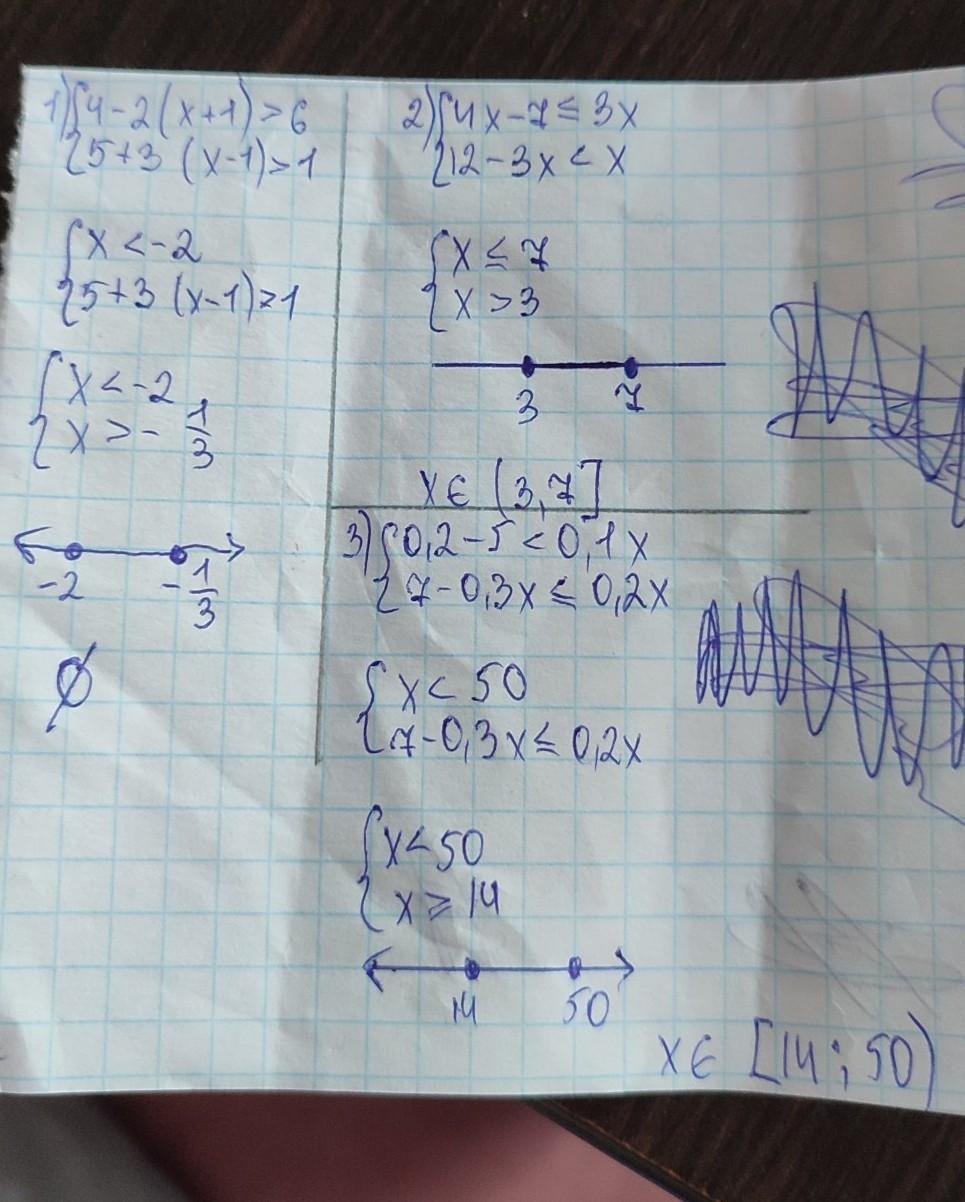 1) { 4-2(x+1)>6
{ 5+3 (x-1)>1
{ x<-2
{ 5+3 (x-1)>1
{ x<-2
{ x>- 1/3
-2 -1/3
∅
2) { 4x-7≤3x
{ 12-3x<x
{ x≤7
{ x>3
3 7
x∈ (3,7]
3) { 0,2-5<0,1x
{ 7-0,3x≤0,2x
{ x<50
{ 7-0,3x≤0,2x
{ x<50
{ x≥14
14 50
x∈ [14;50)